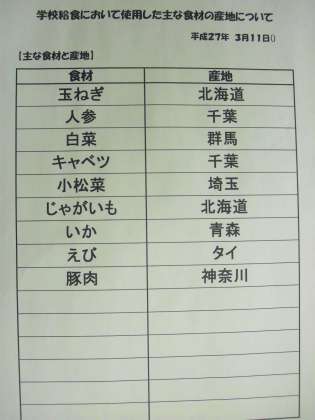 学校給食において使用した主な食材の産地について
平成27年 3月11日()
【主な食材と産地】
食材 産地
玉ねぎ 北海道
人参 千葉
白菜 群馬
キャベツ 千葉
小松菜 埼玉
じゃがいも 北海道
いか 青森
えび タイ
豚肉 神奈川